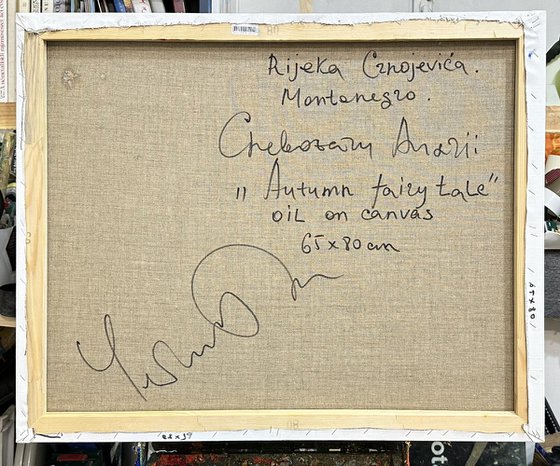 Rijeka Crnojevića.
Montenegro.
Chebotaru Andrii
„ Autumn fairy tale”
oil on canvas
65 x 80 cm